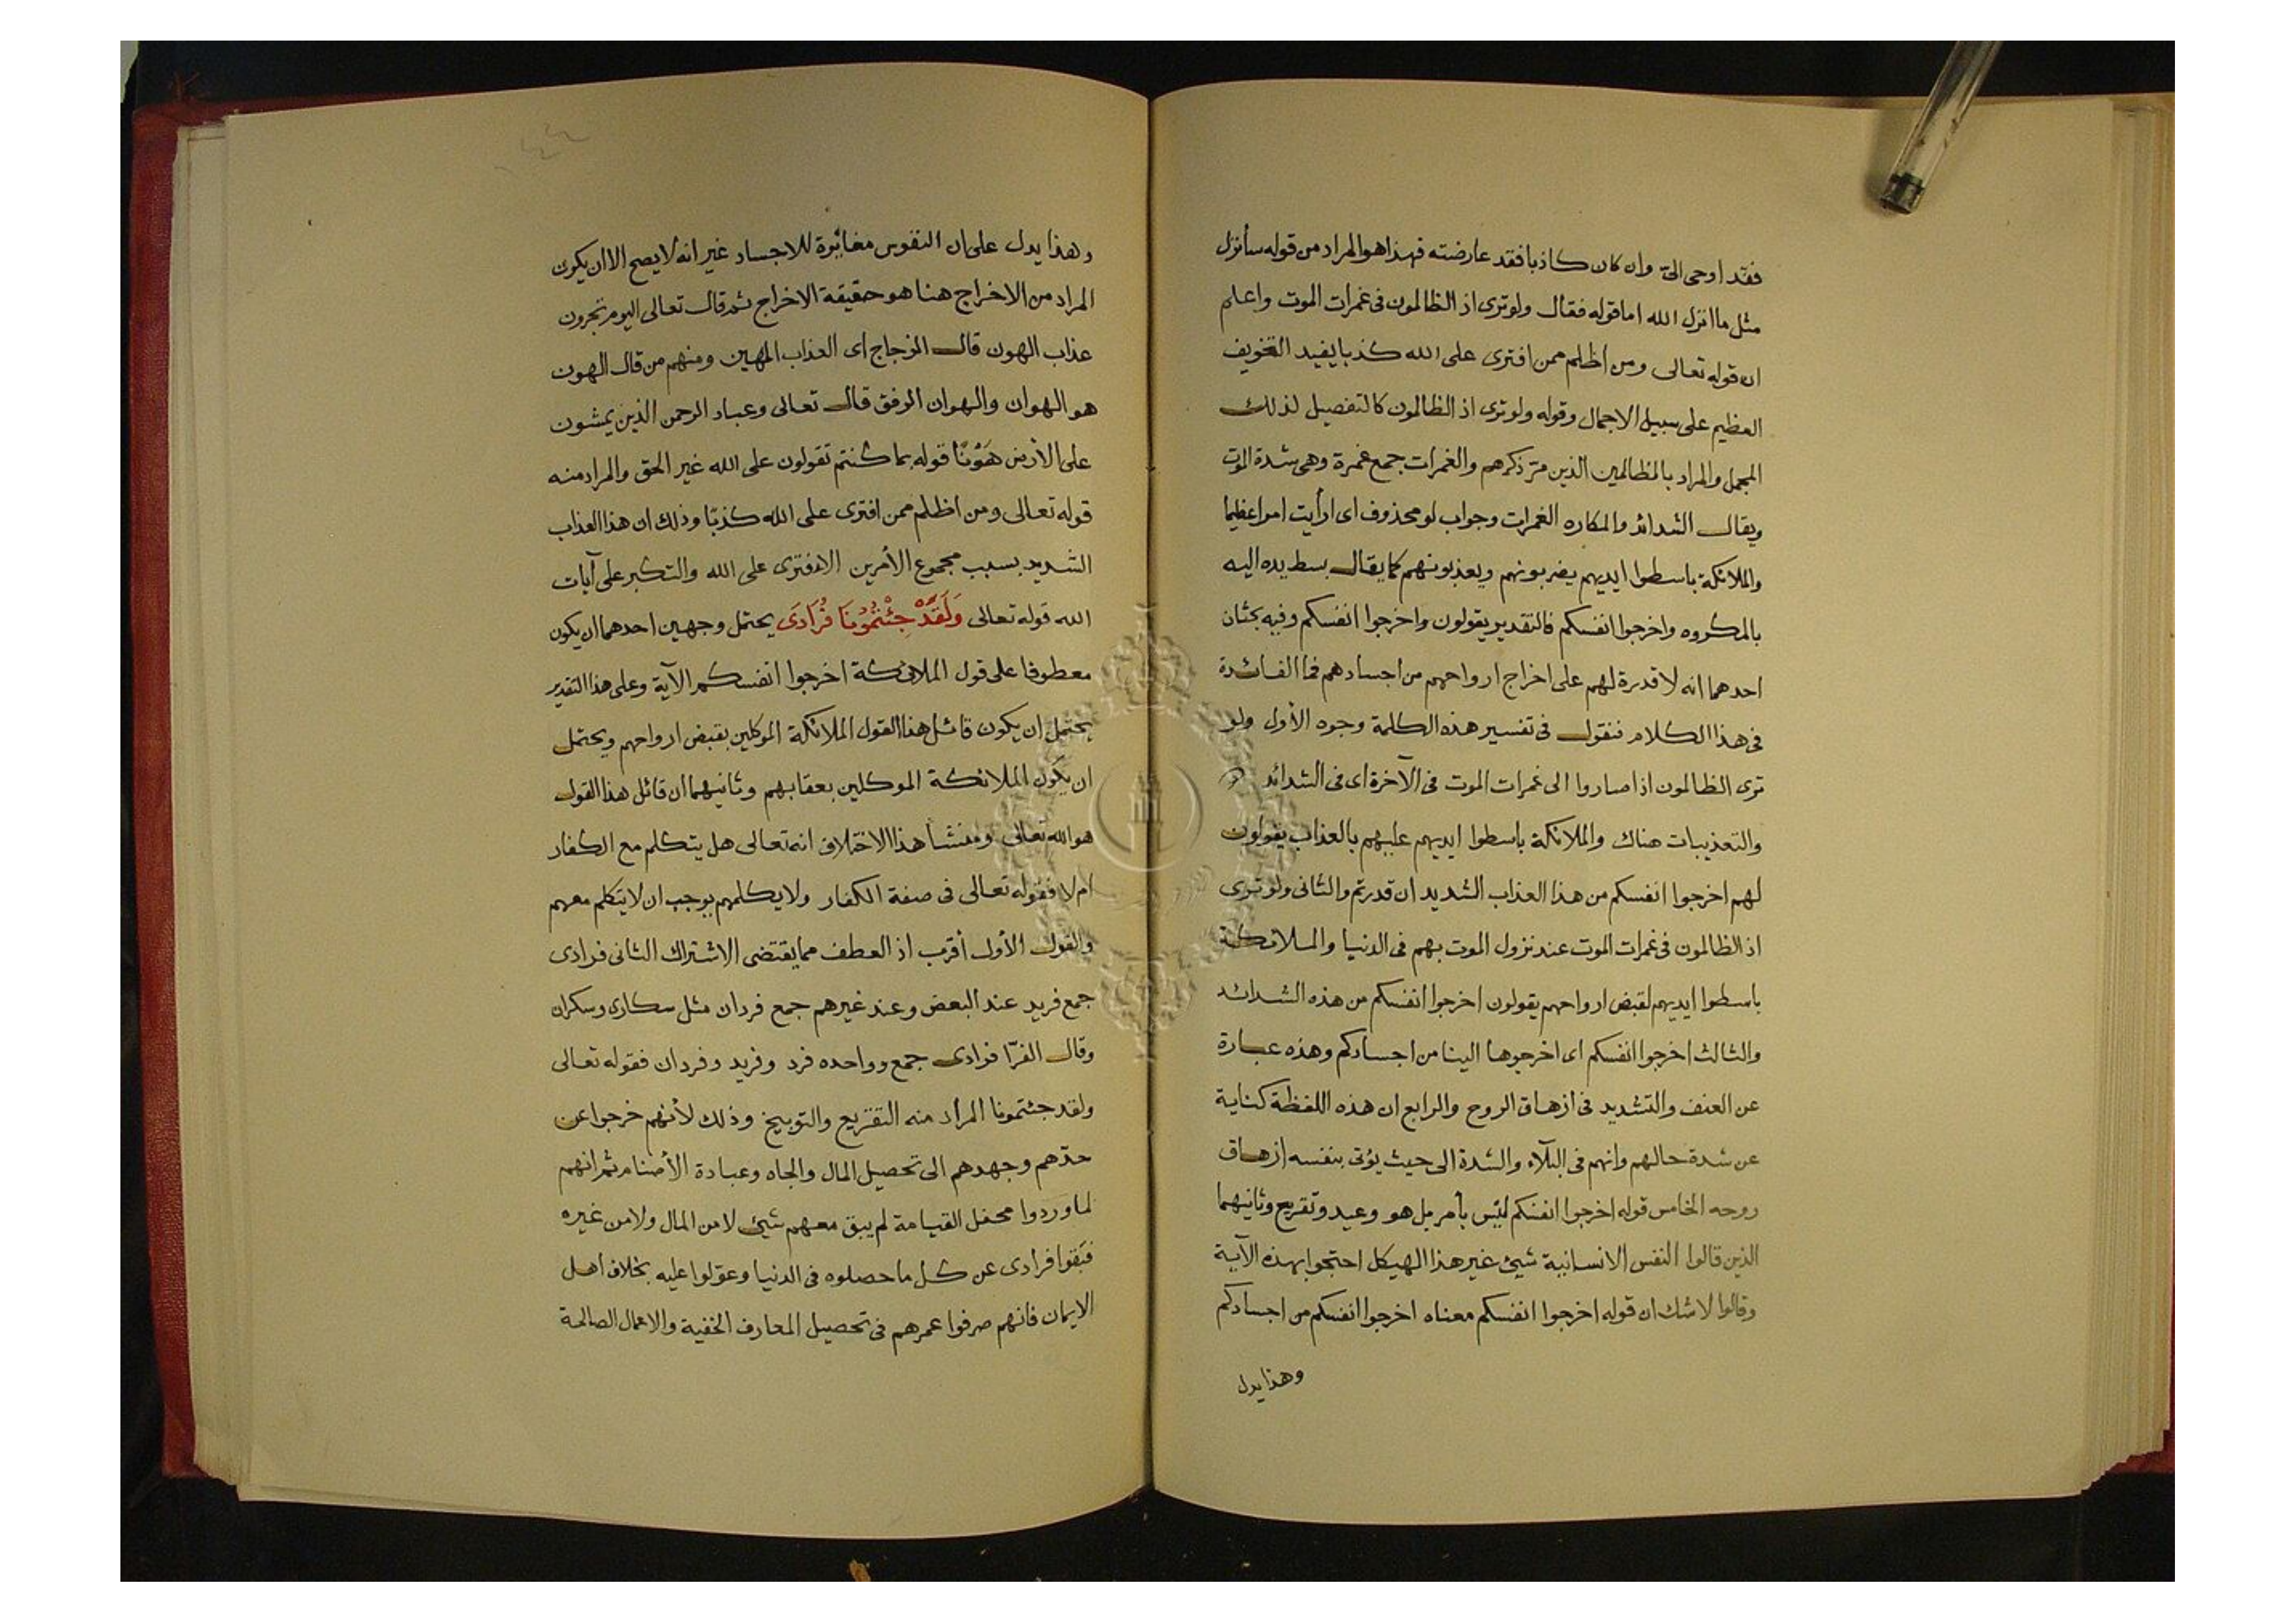 فقد اوحى الىّ وان كان كاذبا فقد عارضته فهذا هو المراد من قوله سأنزل
مثل ما انزل الله اما قوله فقال ولو ترى اذ الظالمون فى غمرات الموت واعلم
ان قوله تعالى ومن اظلم ممن افترى على الله كذبا يفيد التخويف
العظيم على سبيل الاجمال وقوله ولو ترى اذ الظالمون كالتفصيل لذلك
المجمل والمراد بالمظالمين الذين مرّ ذكرهم والغمرات جمع غمرة وهى شدة الموت
ويقال الشدائد والمكاره الغمرات وجواب لو محذوف اى ارأيت امرا عظيما
والملائكة باسطوا ايديهم يضربونهم ويعذبونهم كما يقال بسط يده اليه
بالمكروه واخرجوا انفسكم فالتقدير يقولون واخرجوا انفسكم وفيه بحثان
احدهما انه لا قدرة لهم على اخراج ارواحهم من اجسادهم فما الفائدة
فى هذا الكلام فنقول فى تفسير هذه الكلمة وجوه الأول ولو
ترى الظالمون اذا صاروا الى غمرات الموت فى الآخرة اى فى الشدائد
والتعذيبات هناك والملائكة باسطوا ايديهم عليهم بالعذاب يقولون
لهم اخرجوا انفسكم من هذا العذاب الشديد ان قدرتم والثانى ولو ترى
اذ الظالمون فى غمرات الموت عند نزول الموت بهم فى الدنيا والملائكة
باسطوا ايديهم لقبض ارواحهم يقولون اخرجوا انفسكم من هذه الشدائد
والثالث اخرجوا انفسكم اى اخرجوها الينا من اجسادكم وهذه عبارة
عن العنف والتشديد فى ازهاق الروح والرابع ان هذه اللفظة كناية
عن شدة حالهم وانهم فى البلآء والشدة الى حيث يؤتى بنفسه ازهاق
روحه الخامس قوله اخرجوا انفسكم ليس بأمر بل هو وعيد وتقريع وثانيهما
الذين قالوا النفس الانسانية شيئ غير هذا الهيكل احتجوا بهذه الآية
وقالوا لا شك ان قوله اخرجوا انفسكم معناه اخرجوا انفسكم من اجسادكم
وهذا يدل
وهذا يدل على ان النفوس مغائرة للاجساد غير انه لا يصح الا ان يكون
المراد من الاخراج هنا هو حقيقة الاخراج ثم قال تعالى اليوم تجزون
عذاب الهون قال الزجاج اى العذاب المهين ومنهم من قال الهون
هو الهوان والهوان الرفق قال تعالى وعباد الرحمن الذين يمشون
على الأرض هَوْنًا قوله بما كنتم تقولون على الله غير الحق والمراد منه
قوله تعالى ومن اظلم ممن افترى على الله كذبًا وذلك ان هذا العذاب
الشديد بسبب مجموع الأمرين الافترى على الله والتكبر على آيات
الله قوله تعالى وَلَقَدْ جِئْتُمُونَا فُرَادَى يحتمل وجهين احدهما ان يكون
معطوفا على قول الملائكة اخرجوا انفسكم الآية وعلى هذا التقدير
يحتمل ان يكون قائل هذا القول الملائكة الموكلين بقبض ارواحهم ويحتمل
ان يكون الملائكة الموكلين بعقابهم وثانيهما ان قائل هذا القول
هو الله تعالى ومنشأ هذا الاختلاف انه تعالى هل يتكلم مع الكفار
ام لا فقوله تعالى فى صفة الكفار ولا يكلمهم يوجب ان لا يتكلم معهم
والقول الأول أقرب اذ العطف مما يقتضى الاشتراك الثانى فرادى
جمع فريد عند البعض وعند غيرهم جمع فردان مثل سكارى وسكران
وقال الفرّا فرادى جمع وواحده فرد وفريد وفردان فقوله تعالى
ولقد جئتمونا المراد منه التقريع والتوبيخ وذلك لأنهم خرجوا عن
حدّهم وجهدهم الى تحصيل المال والجاه وعبادة الأصنام ثم انهم
لما وردوا محفل القيامة لم يبق معهم شيئ لا من المال ولا من غيره
فبقوا فرادى عن كل ما حصلوه فى الدنيا وعوّلوا عليه بخلاف اهل
الايمان فانهم صرفوا عمرهم فى تحصيل المعارف الخفية والاعمال الصالحة